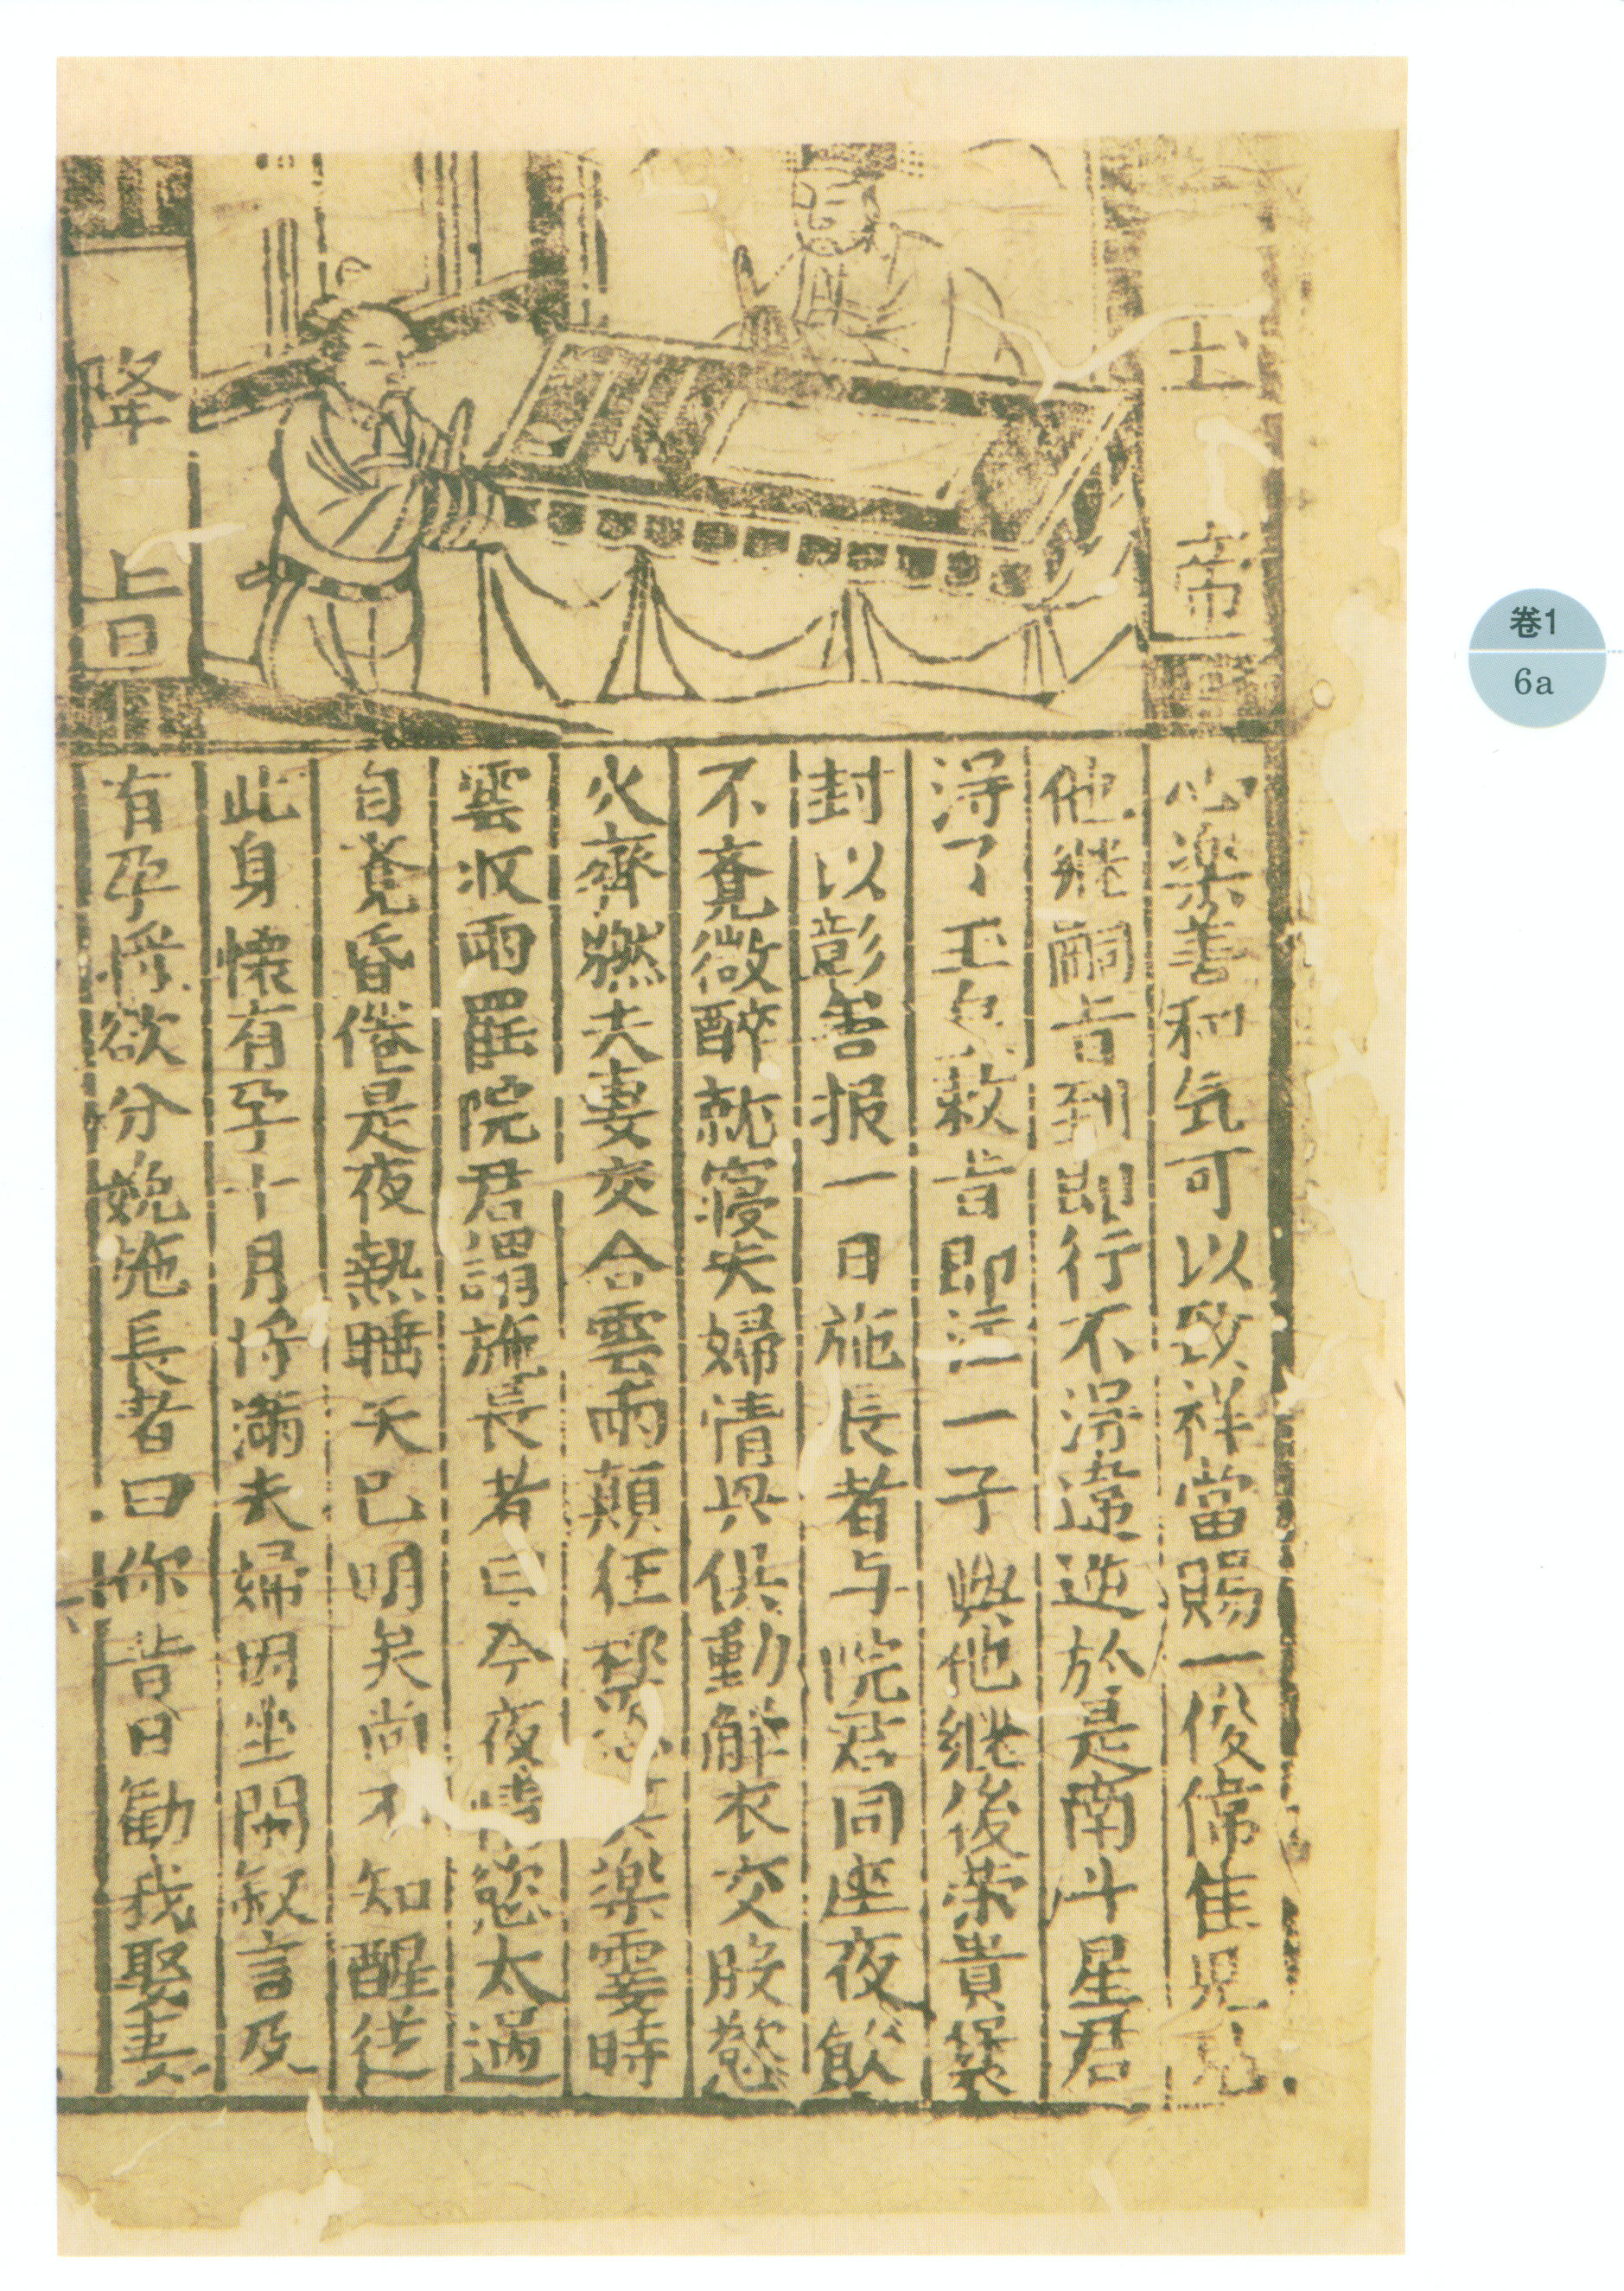 玉帝
降上旨
心楽善和気可以致祥當賜一俊偉隹児
他継嗣旨到即行不淂違逆於是南斗星君
淂了玉帝敕旨即注一子與他継後荣貴褒
封以彰善报一日施長者与院君同座夜飲
不覚微醉就寝夫婦情具俱動解衣交股慾
火齊燃夫妻交合雲雨顛狂極樂霎時
雲收雨罷院君謂施長者曰今夜情慾太過
自覚昏倦是夜熟睡天已明矣尚不知醒従
此身懷有孕十月将满夫婦閑坐閑叙言及
有孕将欲分娩施長者曰你昔日勸我娶妻
卷1
6a